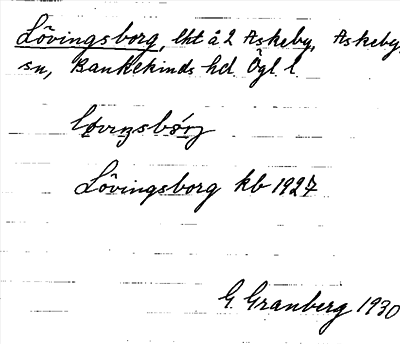 Lövingsborg, lht å 2 Askeby, Askeby
sn, Bankekinds hd Ögl l
Lövingsborg kb 1927
G. Granberg 1930